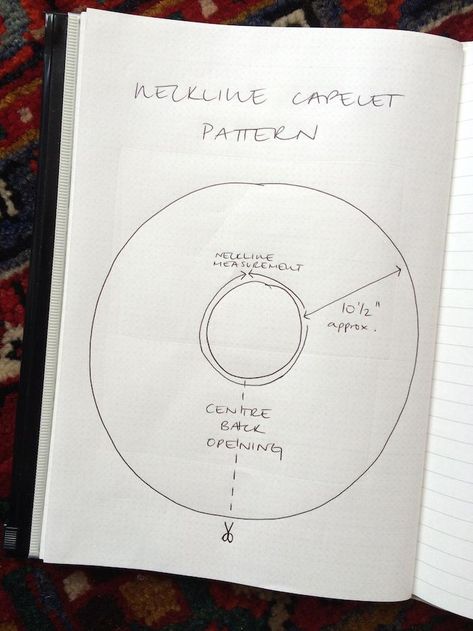 NECKLINE CAPELET
PATTERN
NECKLINE
MEASUREMENT
10 1/2"
approx.
CENTRE
BACK
OPENING